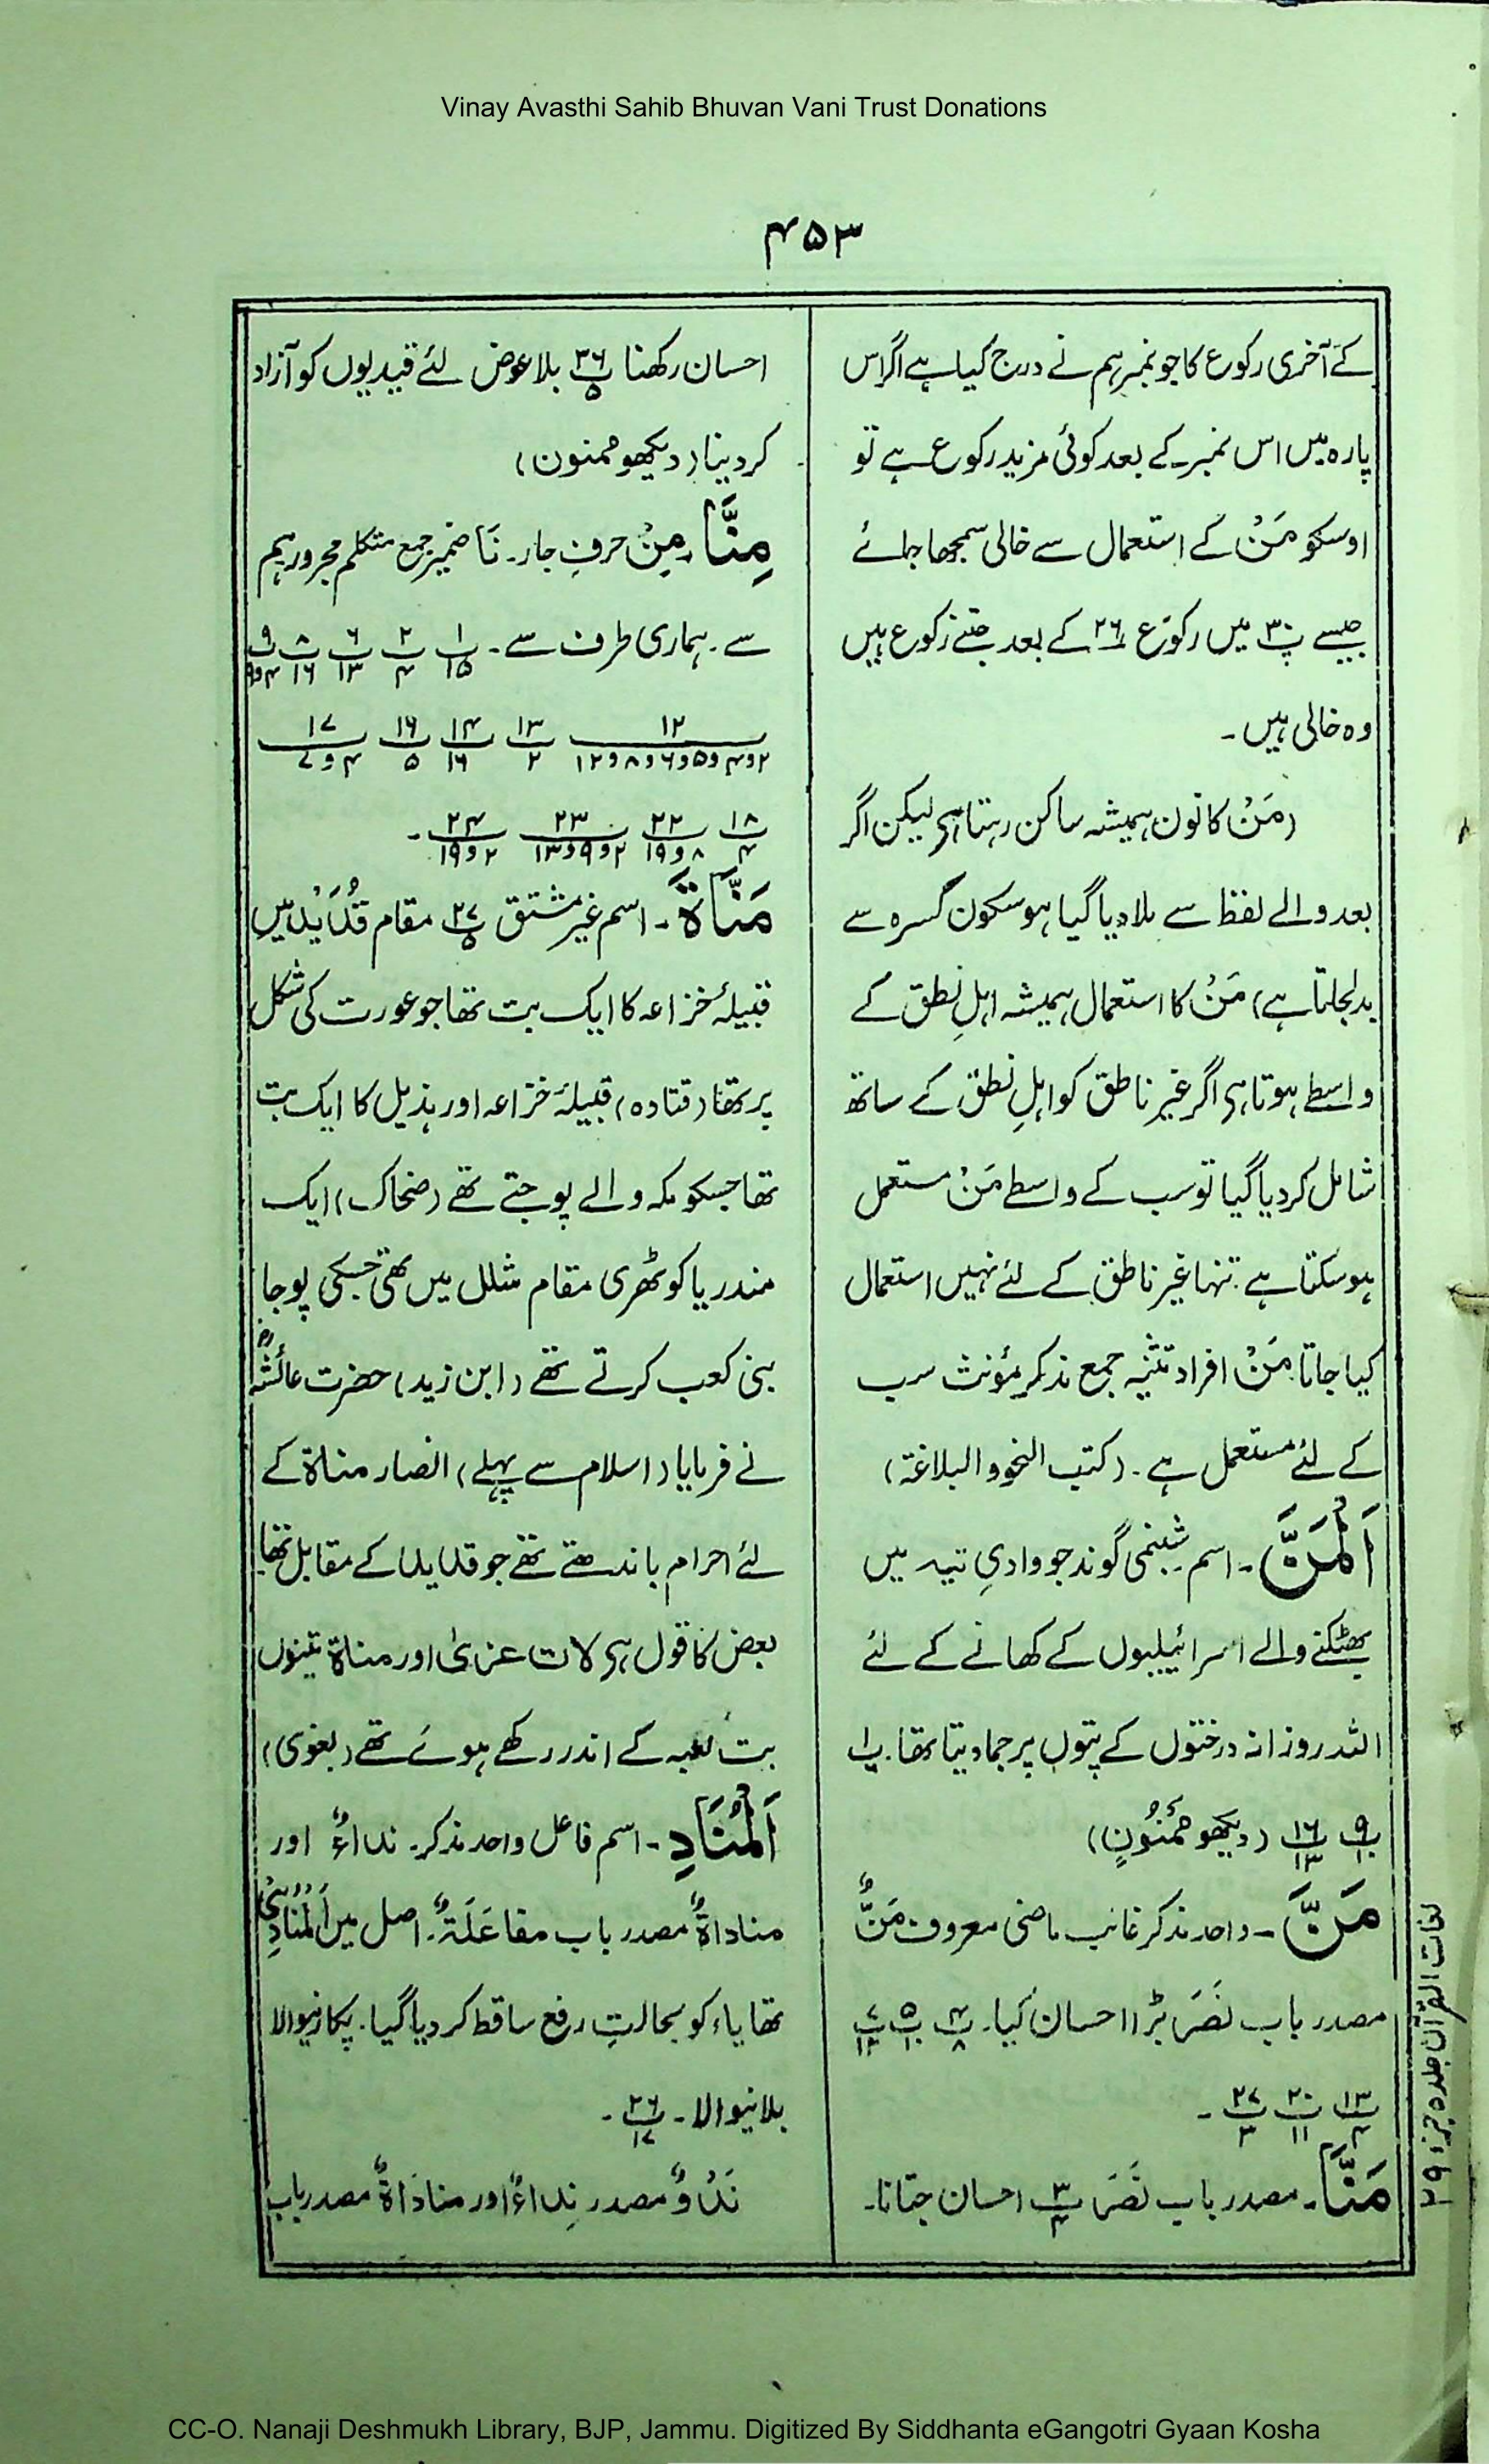 Vinay Avasthi Sahib Bhuvan Vani Trust Donations
۴۵۳
کے آخری رکوع کا جو نمبر ہم نے درج کیا ہے اگر اس
پارہ میں اس نمبر کے بعد کوئی مزید رکوع ہے تو
اوسکو مَنْ کے استعمال سے خالی سمجھا جائے
جیسے پ۳۰ میں رکوع ۲۶ کے بعد جتنے رکوع ہیں
وہ خالی ہیں ۔
(مَنْ کا نون ہمیشہ ساکن رہتا ہی لیکن اگر
بعد والے لفظ سے ملا دیا گیا ہو سکون کسرہ سے
بدلجاتا ہے) مَنْ کا استعمال ہمیشہ اہلِ نطق کے
واسطے ہوتا ہی اگر غیر ناطق کو اہلِ نطق کے ساتھ
شامل کر دیا گیا تو سب کے واسطے مَنْ مستعمل
ہو سکتا ہے ۔ تنہا غیر ناطق کے لئے نہیں استعمال
کیا جاتا مَنْ افراد تثنیہ جمع مذکر مؤنث سب
کے لئے مستعمل ہے ۔ (کتب النحو والبلاغۃ)
اَلْمَنَّ ۔ اسم شبنمی گوند جو وادیِ تیہ میں
بھٹکنے والے اسرائیلیوں کے کھانے کے لئے
اللہ روزانہ درختوں کے پتوں پر جما دیتا تھا ۔ پ۱
پ۹/۱۰ پ۱۶/۱۳ (دیکھو مَمْنُوْنٍ)
مَنَّ ۔ واحد مذکر غائب ماضی معروف مَنٌّ
مصدر باب نَصَرَ بڑا احسان کیا ۔ پ۴/۸ پ۵/۱۰ پ۷/۱۲
پ۱۳/۴ پ۲۰/۱۱ پ۲۷/۳ ۔
مَنًّا ۔ مصدر باب نَصَرَ پ۳/۴ احسان جتانا ۔
احسان رکھنا ۲۶/۵ بلا عوض لئے قیدیوں کو آزاد
کر دینا (دیکھو ممنون)
مِنَّا ۔ مِنْ حرفِ جار ۔ نَا ضمیر جمع متکلم مجرور ہم
سے ۔ ہماری طرف سے ۔ ۱/۱۵ ۲/۴ ۶/۱۳ ۸/۱۶ ۹/۴و۹
۱۲/۲و۴و۵و۶و۸و۱۲ ۱۳/۲ ۱۴/۱۶ ۱۶/۵ ۱۷/۴و۷
۱۸/۴ ۲۲/۸و۱۹ ۲۳/۲و۹و۱۳ ۲۴/۲و۱۹ ۔
مَنَّاۃَ ۔ اسم غیر مشتق ۲۷/۵ مقام قُدَیْد میں
قبیلۂ خزاعہ کا ایک بت تھا جو عورت کی شکل
پر تھا (قتادہ) قبیلۂ خزاعہ اور ہذیل کا ایک بت
تھا جسکو مکہ والے پوجتے تھے (ضحاک) ایک
مندر یا کوٹھری مقام مشلل میں تھی جسکی پوجا
بنی کعب کرتے تھے (ابن زید) حضرت عائشہؓ
نے فرمایا (اسلام سے پہلے) انصار مناۃ کے
لئے احرام باندھتے تھے جو قدید کے مقابل تھا
بعض کا قول ہی لات عزیٰ اور مناۃ تینوں
بت کعبہ کے اندر رکھے ہوئے تھے (بغوی)
اَلْمُنَادِ ۔ اسم فاعل واحد مذکر ۔ نداءٌ اور
مناداۃٌ مصدر باب مفاعَلَۃٌ ۔ اصل میں اَلْمُنَادِیُ
تھا یاء کو بحالتِ رفع ساقط کر دیا گیا ۔ پکارنیوالا
بلانیوالا ۔ پ۲۶/۱۷ ۔
نَدْوٌ مصدر نِداءٌ اور مناداۃٌ مصدر باب
لغات القرآن جلد ۵ جزء ۲۹
CC-O. Nanaji Deshmukh Library, BJP, Jammu. Digitized By Siddhanta eGangotri Gyaan Kosha